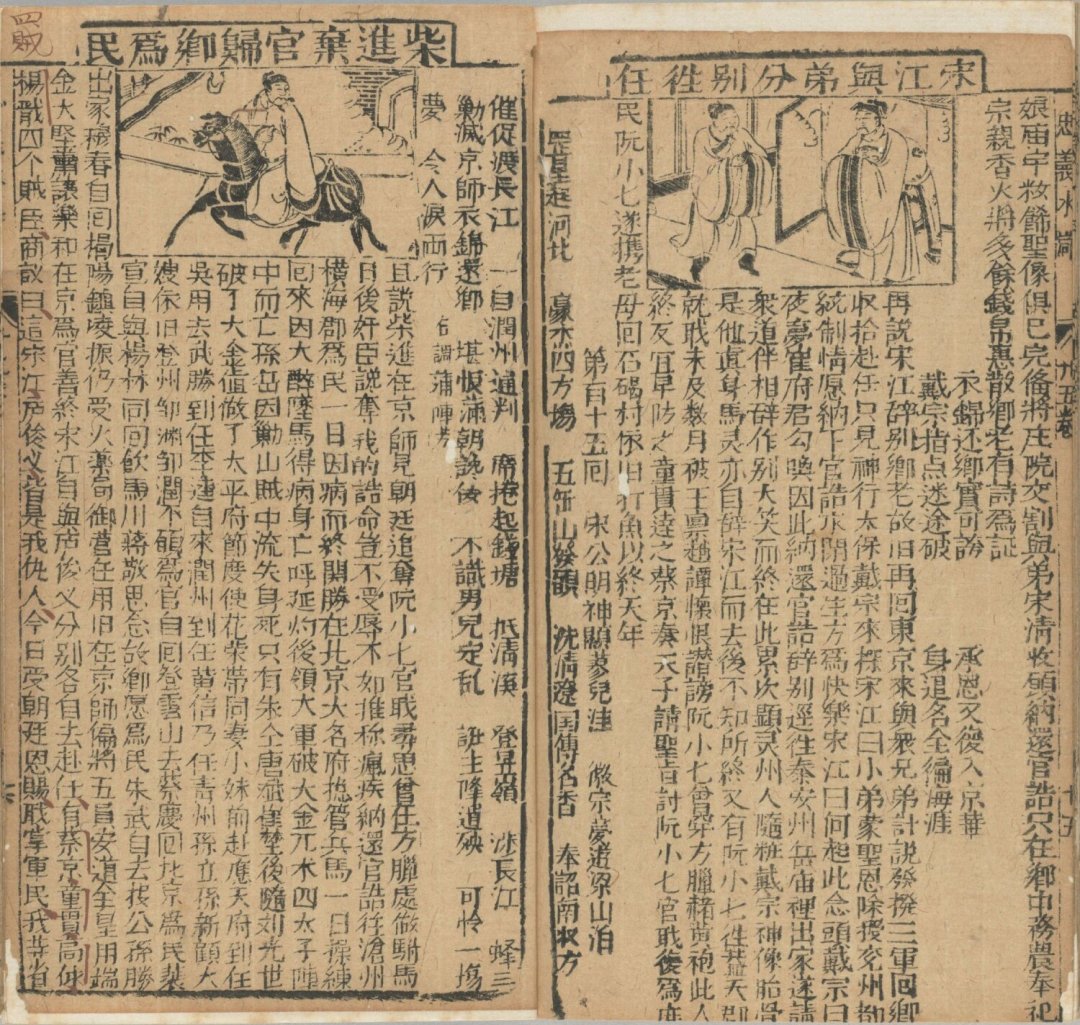 宋江與弟分别徃任
娘庙宇粧餙聖像俱已完俻將庄院交割與弟宋清收領納還官誥只在鄉中務農奉祀
宗親香火將多餘錢帛惠散鄉老有詩為証
衣錦还鄉實可誇　承恩又復入京華
戴宗指点迷途破　身退名全徧海涯
再說宋江辞别鄉老故旧再囘東京來與衆兄弟計説發撥三軍囘鄉
收拾赴任只見神行太保戴宗來探宋江曰小弟蒙聖恩除授兖州都
統制情愿納下官誥求閑過生方爲快樂宋江曰何起此念頭戴宗曰
夜夢崔府君勾喚因此納還官誥辞别逕徃泰安州岳庙裡出家遂請
衆道伴相辞作别大笑而終在此累次顕灵州人隨粧戴宗神像胎骨
是他真身馬灵亦自辞宋江而去後不知所終又有阮小七徃蓋天郡
就職未及数月被王禀趙譚懷恨讃謗阮小七曾穿方臘赭黃袍此人
終反宜早防之童貫達之蔡京奏天子請聖旨討阮小七官職後爲庶
民阮小七遂携老母囘石碣村依旧打魚以終天年
第百十五囘　宋公明神顯蓼兒洼　徽宗夢遊梁山泊
罡星起河北　豪杰四方揚　五䑓山發願　洗清遼国傳名香　奉詔南收方
柴進棄官歸鄉爲民
催促渡長江　一自潤州通判　席捲起錢塘　抵清溪　登昱嶺　涉長江　蜂三
勦滅京師衣錦還鄉　堪恨滿朝讒佞　不識男兒定乱　誑主降遺殃　可怜一塲
夢　令人淚両行　右調
且說柴進在京師見朝廷追奪阮小七官職尋思曾在方臘處做駙馬
日後奸臣説奪我的誥命豈不受辱不如推称瘋疾納還官誥徃滄州
橫海郡爲民一日因病而終関勝在北京大名府捴管兵馬一日操練
囘來因大醉墜馬得病身亡呼延灼後領大軍破大金兀术四太子陣
中而亡孫岳因勦山賊中流失身死只有朱仝唐斌崔埜後隨刘光世
破了大金直做了太平府節度使花荣帯同妻小妹前赴應天府到任
吳用去武勝到任李逵自來潤州到任黄信乃任青州孫立孫新顧大
嫂依旧登州邹渊邹潤不願爲官自囘登雲山去蔡慶囘北京爲民裴
宣自與楊林同囘飲馬川蔣敬思念故鄉愿爲民朱武自去投公孫勝
出家穆春自囘揭陽鎮凌振仍受火藥局御營任用旧在京師偏將五員安道全皇甫端
金大堅蕭讓樂和在京爲官善終宋江自與店俊义分别各自去赴任有蔡京童貫高俅
楊戩四个賊臣商議曰這宋江店俊义皆是我仇人今日受朝廷恩賜職掌軍民我等省